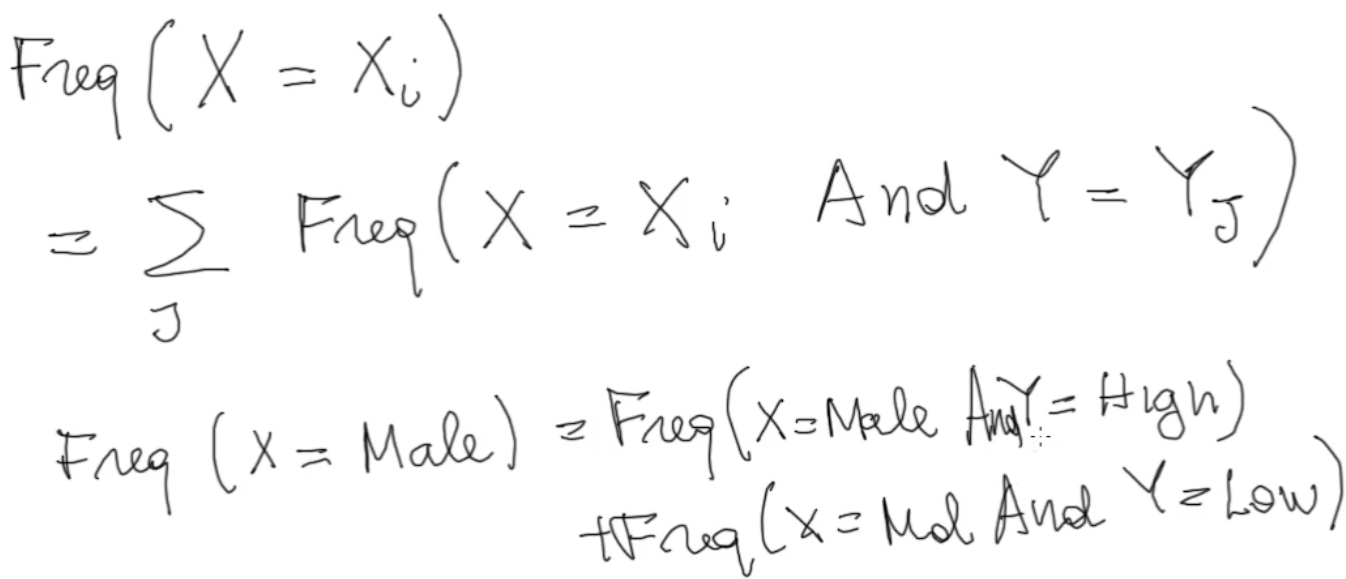 Freq (X = Xi)
= Σ Freq (X = Xi And Y = YJ)
J
Freq (X = Male) = Freq (X = Male And Y = High)
+ Freq (X = Mal And Y = Low)